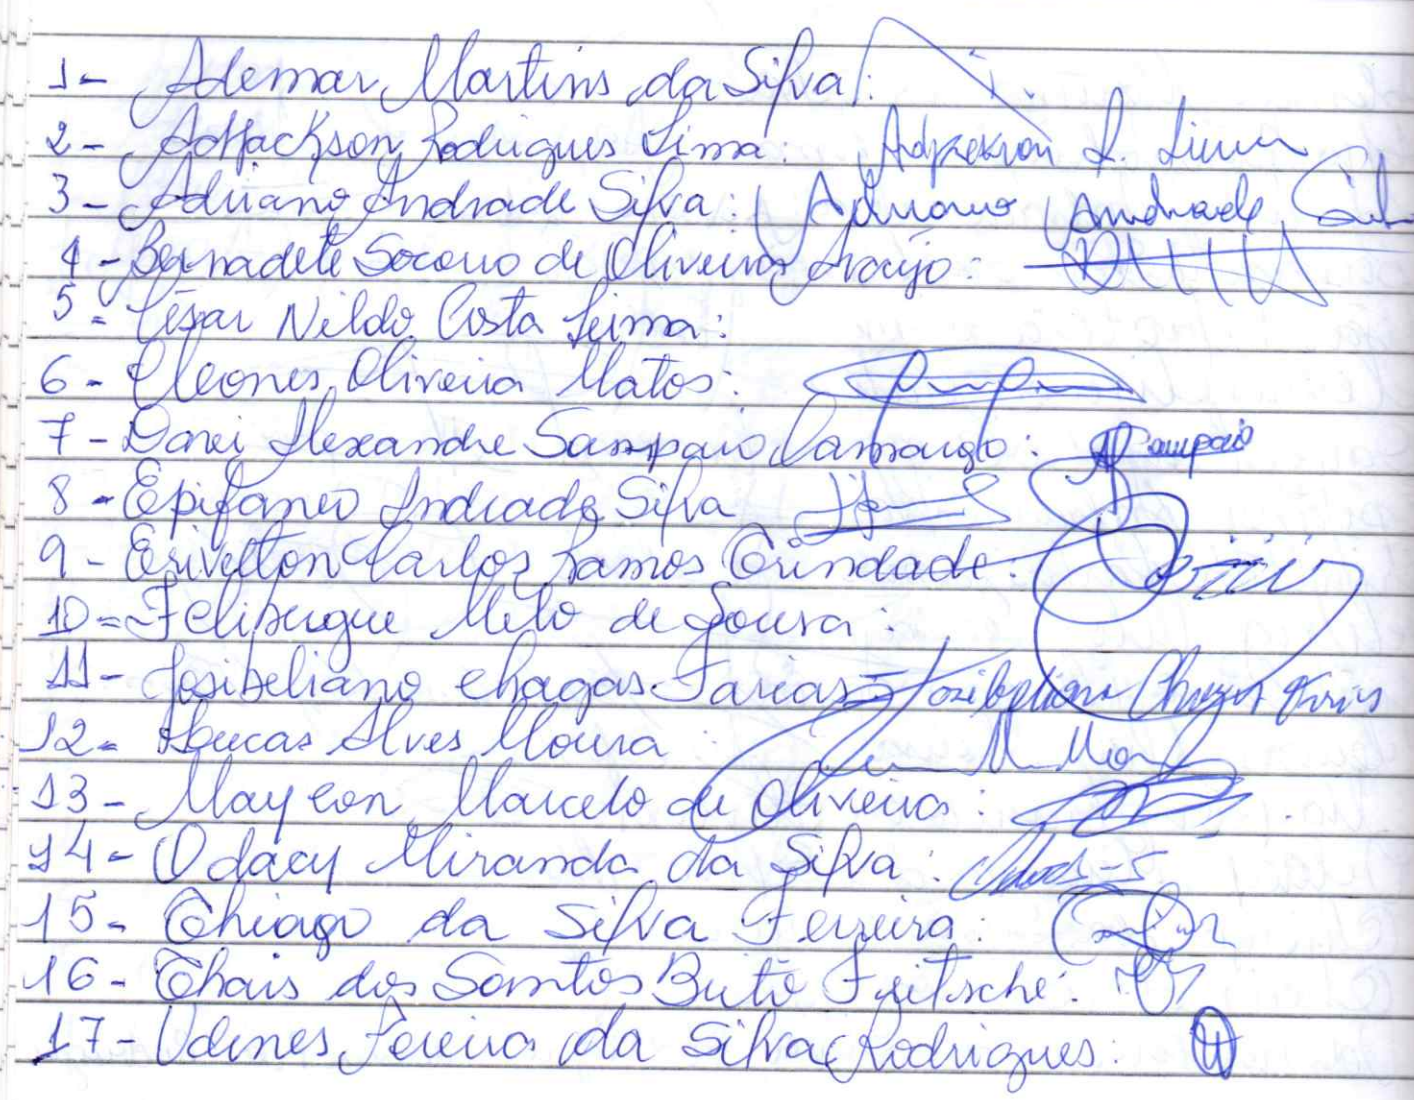 1- Ademar Martins da Silva:
2- AdJackson Rodrigues Lima: Adjackson R. Lima
3- Adriano Andrade Silva: Adriano Andrade Silva
4- Bernadete Socorro de Oliveira Araújo:
5- César Nildo Costa Lima:
6- Cleones Oliveira Matos:
7- Darei Alexandre Sampaio Camargo: Sampaio
8- Epifaneo Andrade Silva
9- Erivelton Carlos Ramos Trindade:
10- Felipe Melo de Sousa:
11- Josibeliano Chagas Farias - Josibeliano Chagas Farias
12- Lucas Alves Moura:
13- Maycon Marcelo de Oliveira:
14- Odacy Miranda da Silva:
15- Thiago da Silva Ferreira:
16- Thais dos Santos Brito Fritsche:
17- Odines Pereira da Silva Rodrigues: